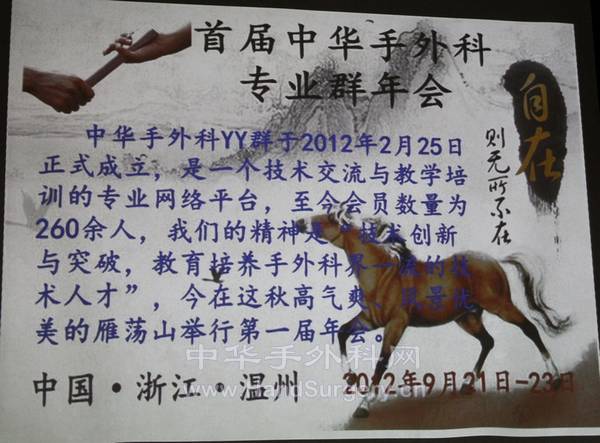 首届中华手外科
专业群年会
自在
则无所不在
中华手外科YY群于2012年2月25日
正式成立，是一个技术交流与教学培
训的专业网络平台，至今会员数量为
260余人，我们的精神是“技术创新
与突破，教育培养手外科界一流的技
术人才”，今在这秋高气爽、风景优
美的雁荡山举行第一届年会。
中华手外科网
www.HandSurgery.cn
中国·浙江·温州
2012年9月21日-23日